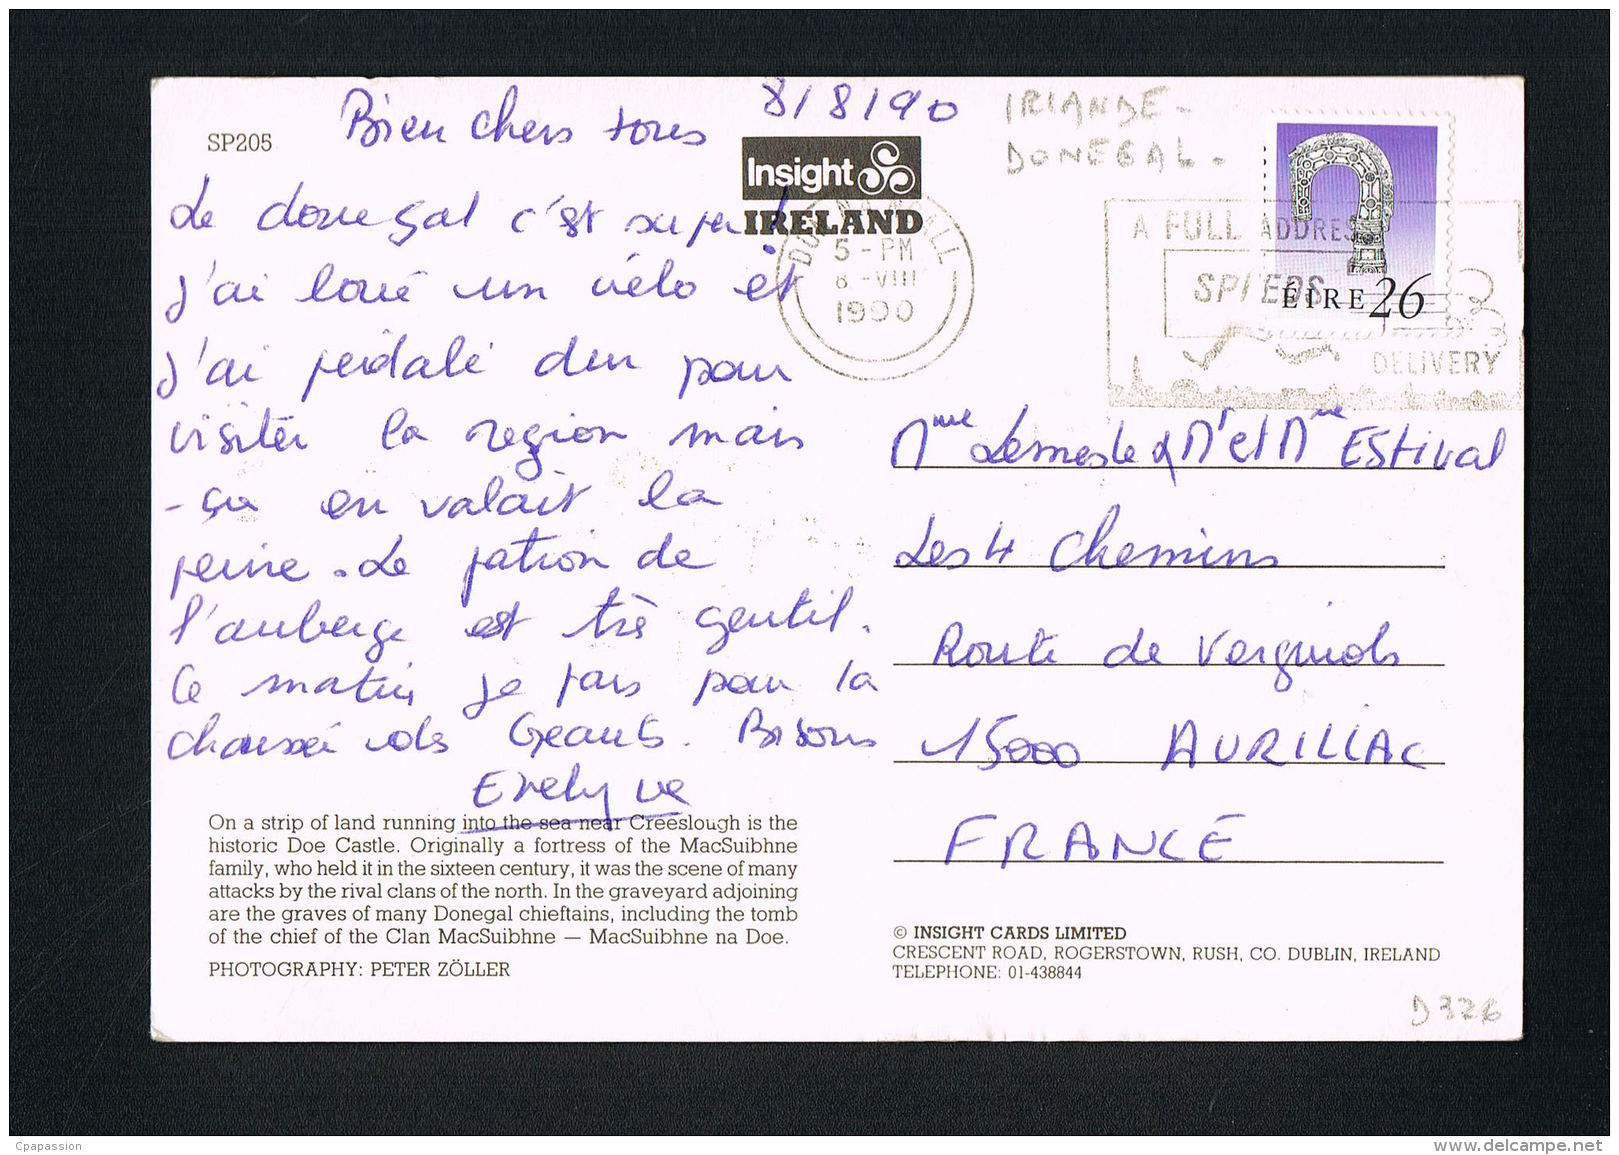 SP205
Bien chers tous
8/8/90
Le donegal c'est super !
j'ai loué un vélo et
j'ai pédalé dur pour
visiter la region mais
-ça en valait la
peine. Le patron de
l'auberge est très gentil.
Ce matin je pars pour la
chaussée des Géants. Bisous
Evelyne
On a strip of land running into the sea near Creeslough is the
historic Doe Castle. Originally a fortress of the MacSuibhne
family, who held it in the sixteen century, it was the scene of many
attacks by the rival clans of the north. In the graveyard adjoining
are the graves of many Donegal chieftains, including the tomb
of the chief of the Clan MacSuibhne — MacSuibhne na Doe.
PHOTOGRAPHY: PETER ZÖLLER
Insight
IRELAND
5 - PM
8 - VIII
1990
IRLANDE -
DONEGAL -
A FULL ADDRESS
SPEEDS
DELIVERY
ÉIRE 26
Mme Lemesle & Mr et Mme EStival
Les 4 Chemins
Route de
15000 AURILLAC
FRANCE
© INSIGHT CARDS LIMITED
CRESCENT ROAD, ROGERSTOWN, RUSH, CO. DUBLIN, IRELAND
TELEPHONE: 01-438844
D326
Cpapassion
www.delcampe.net